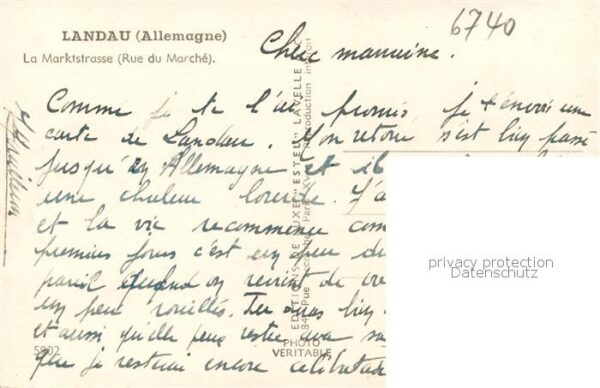 6740
LANDAU (Allemagne)
La Marktstrasse (Rue du Marché).
Chère marraine.
Comme je te l'ai promis, je t'envoi une
carte de Landau. Mon retour s'est bien passé
jusqu'en Allemagne et il
une chaleur lourde. J'a
et la vie recommence com
premiers jours c'est un peu du
pareil quand on revient de
un peu rouillés. Tu
et aussi qu'elle peux rester
que je resterai encore célibataire
5902
EDITIONS DE LUXE "ESTEL" LAVELLE
Reproduction interdite
PHOTO
VERITABLE
privacy protection
Datenschutz